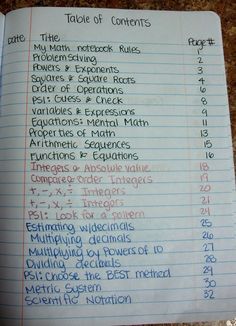 Table of Contents
Date Title Page #
My Math notebook Rules 1
Problem Solving 2
Powers & Exponents 3
Squares & Square Roots 4
Order of Operations 6
PSI: Guess & Check 8
Variables & Expressions 9
Equations: Mental Math 11
Properties of Math 13
Arithmetic Sequences 15
Functions & Equations 16
Integers & Absolute Value 18
Compare & Order Integers 19
+, -, x, ÷ Integers 20
+, -, x, ÷ Integers 21
PSI: Look for a pattern 24
Estimating w/decimals 25
Multiplying decimals 26
Multiplying by Powers of 10 27
Dividing decimals 28
PSI: Choose the BEST method 29
Metric System 30
Scientific Notation 32